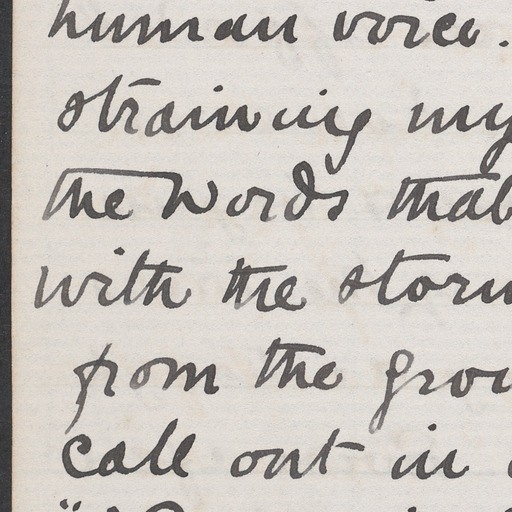 human voice.
straining my
the words that
with the storm
from the grou
call out in